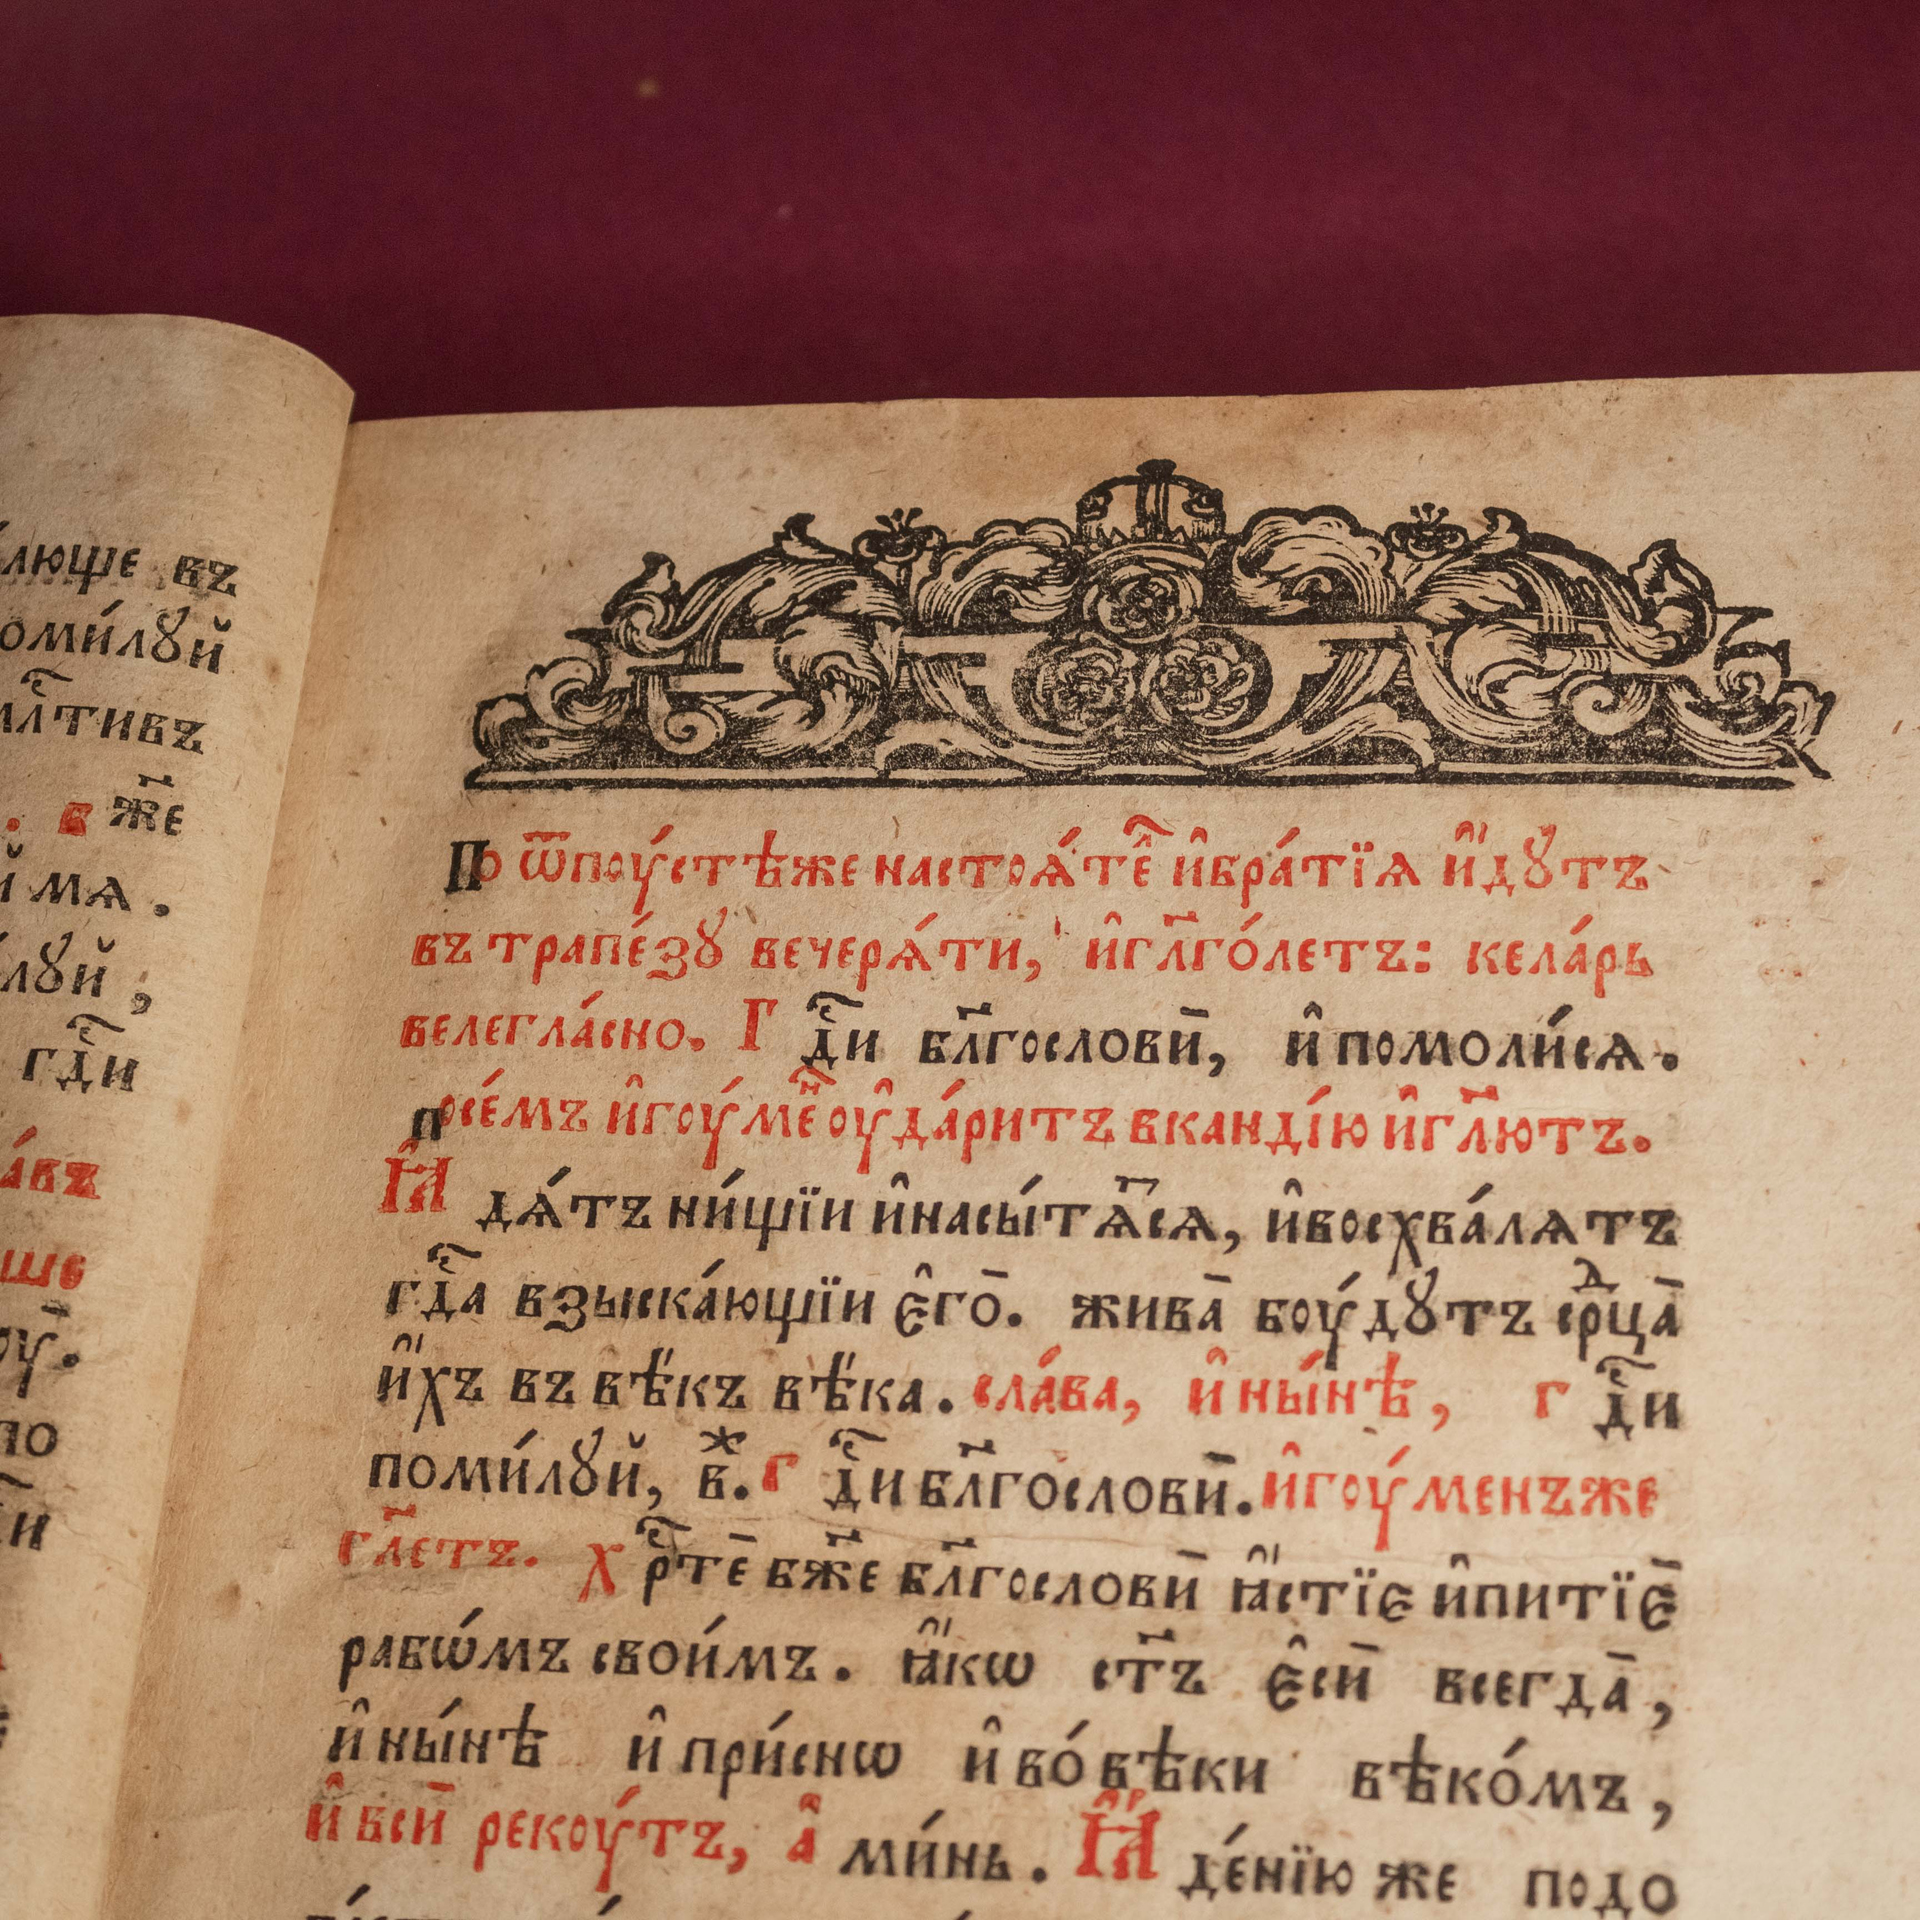 люще въ
оми́лꙋй
лⷭ҇тивъ
. в҃ бж҃е
и мѧ .
лꙋй ,
гдⷭ҇и
а́въ
ше
оу҃.
по
и
По ѿпоу́стѣже настоѧ́теⷧ҇ и҆бра́тїѧ и҆́дꙋтъ
въ трапе́зꙋ вечерѧ́ти, и҆гл҃го́летъ: кела́рь
велегла́сно. Г дⷭ҇и бл҃гослови̑, и҆ помоли́сѧ.
посе́мъ и҆гоу́меⷩ҇ оу҆да́ритъ вканді́ю и҆гл҃ютъ.
Ꙗ҆ дѧ́тъ ни́щїи и҆насы́тѧ҃сѧ, и҆восхва́лѧтъ
гдⷭ҇а взыска́ющїи є҆го̑. жива̑ боу́дꙋтъ срⷣца̑
и҆́хъ въ вѣ́къ вѣ́ка. сла́ва, и҆ ны́нѣ, г дⷭ҇и
поми́лꙋй, в҃ⷤ. г дⷭ҇и бл҃гослови̑. и҆гоу́менъже
гл҃етъ. х рⷭ҇те̑ бж҃е бл҃гослови̑ ꙗ҆́стїє и҆питїє̑
рабѡ́мъ свои́мъ. ꙗ҆́кѡ ст҃ъ є҆си̑ всегда̑,
и҆ ны́нѣ и҆ при́снѡ и҆ во́ вѣки вѣко́мъ,
и҆ вси̑ рекоу́тъ, а҆ ми́нь. Ꙗ҆ де́нїю же подо